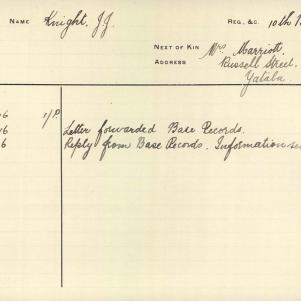 NAME Knight, J.J. REG. &C. 10th B
NEXT OF KIN Mrs Marriott,
ADDRESS Russell Street,
Yatala
16 1/P. Letter forwarded Base Records.
16 Reply from Base Records. Information se
6